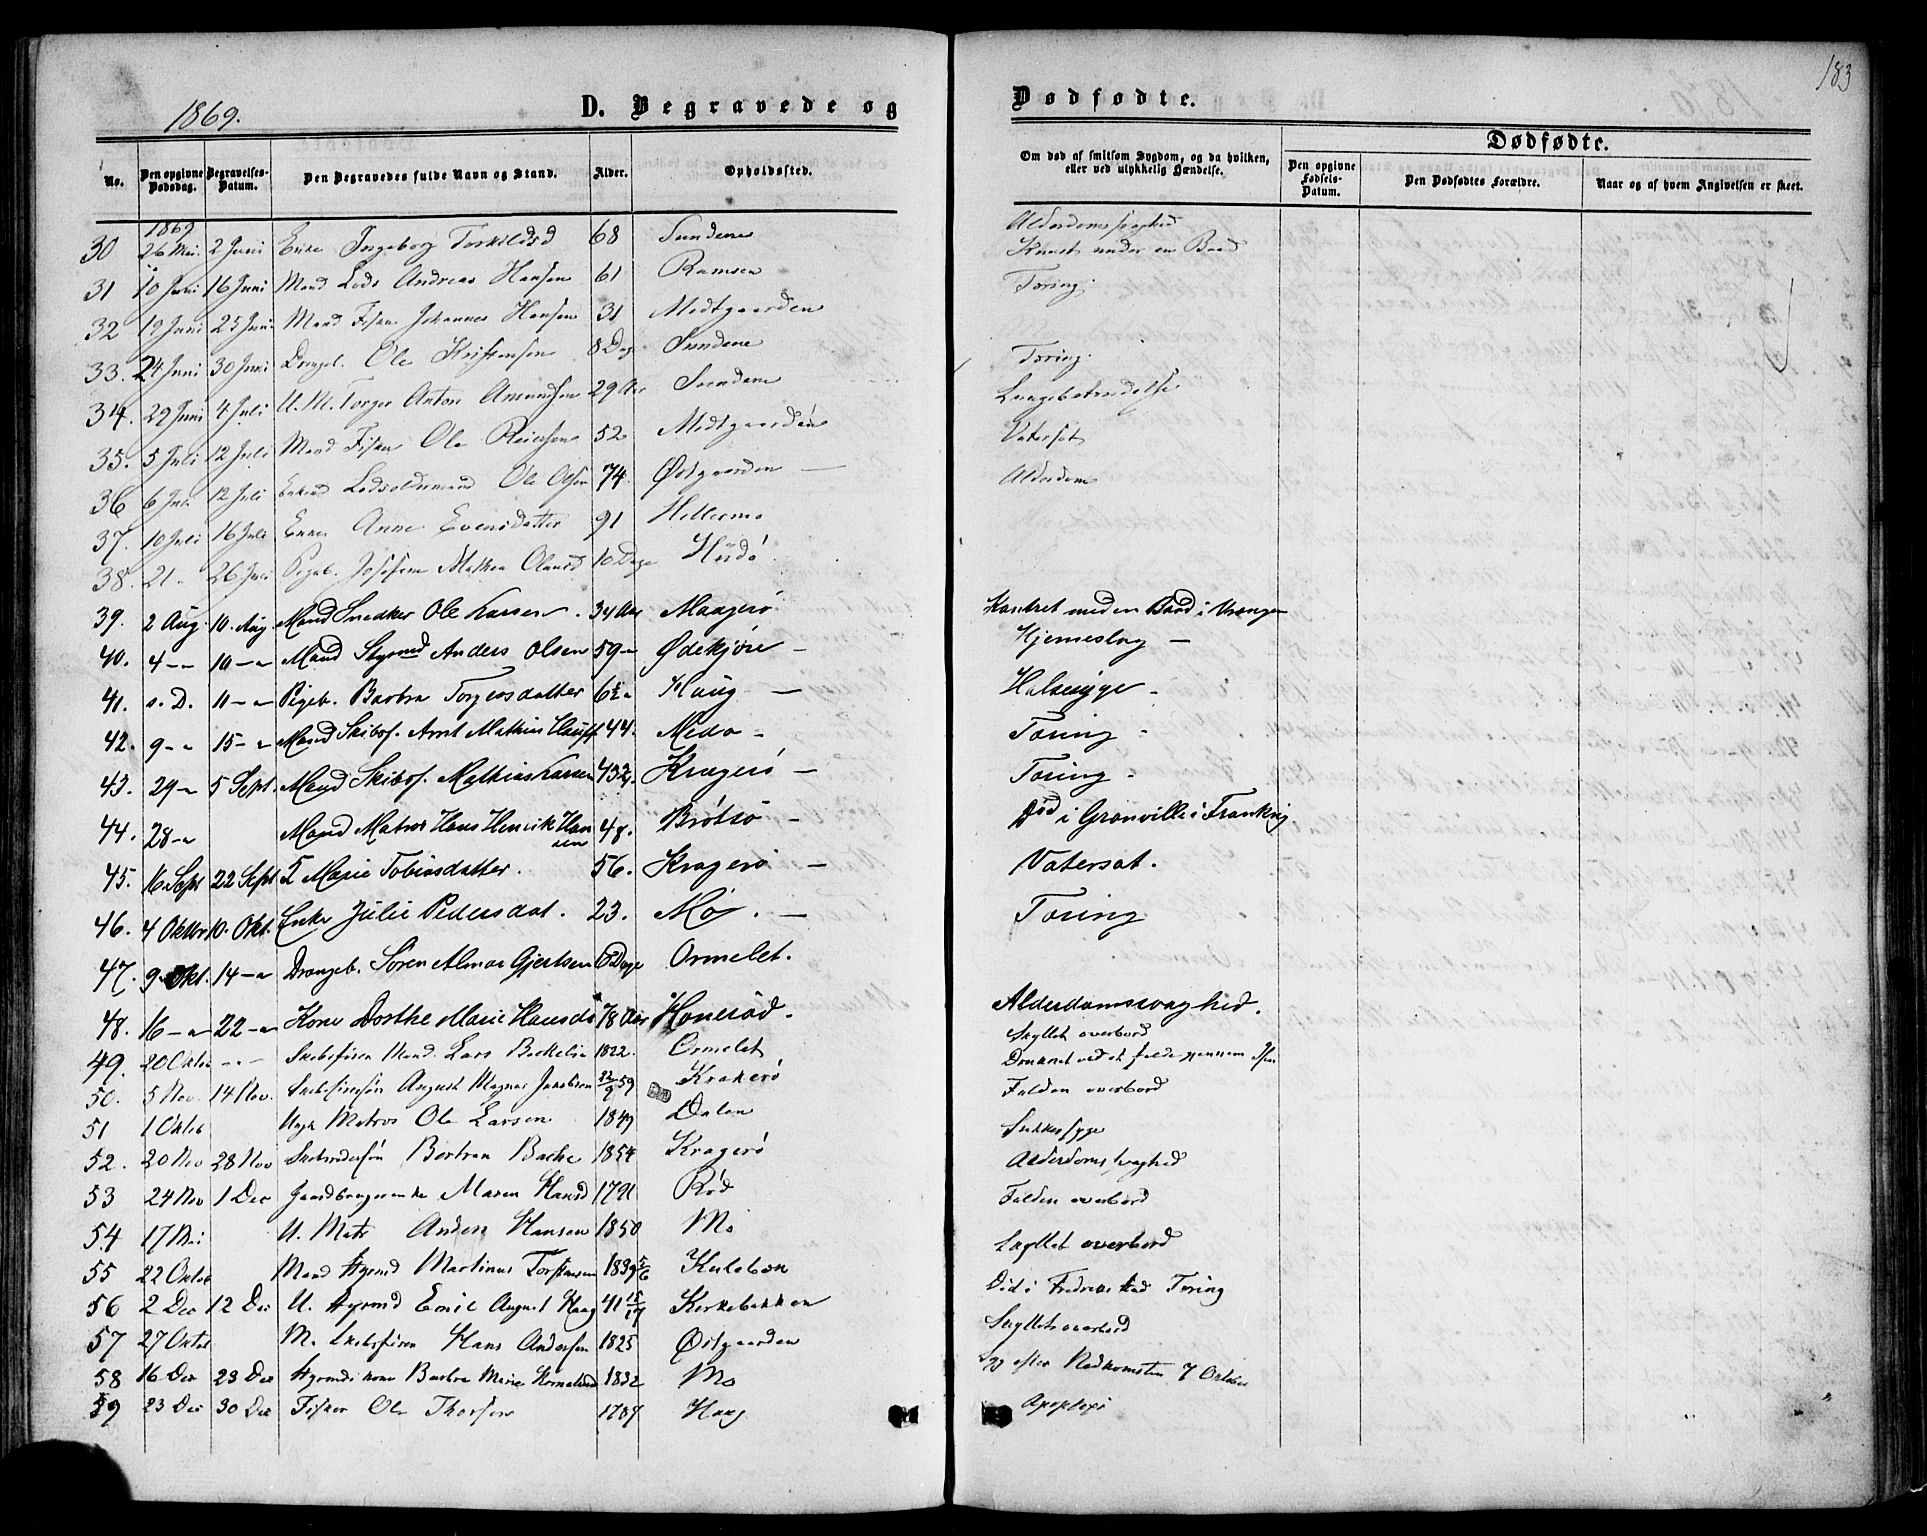 1869.
D. Begravede og
Dødfødte.
183
No. Den opgivne Dødsdag. Begravelses-Datum. Den Begravedes fulde Navn og Stand. Alder. Opholdssted.
Om død af smitsom Sygdom, og da hvilken, eller ved ulykkelig Hændelse.
Dødfødte.
Den opgivne Fødsels-Datum. Den Dødfødtes Forældre. Naar og af hvem Angivelsen er skeet.
1869
30 26 Mai 2 Juni Enke Ingeborg Torkildsd 68 Sundene
31 10 Juni 16 Juni Mand Lods Andreas Hansen 61 Ramsøen
32 19 Juni 25 Juni Mand Fisker Johannes Hansen 31 Medtgaarden
33. 24 Juni 30 Juni Drengeb. Ole Kristensen 8 Dag Sundene
34. 29 Juni 4 Juli U. M. Torger Anton Amundsen 29 Aar Sundene
35. 5 Juli 12 Juli Mand Fisker Ole Reiersen 52 Medtgaarden
36 6 Juli 12 Juli Enkem Lodsoldermand Ole Olsen 74. Østgaarden
37. 10 Juli 16 Juli Enke Anne Evensdatter 91 Hellesmo
38. 21. 26 Juli Pigeb. Josefine Mathea Olausd 10 Dage Hudø
39. 2 Aug. 10. Aug Mand Snedker Ole Larsen. 34 Aar Maagerø
40. 4 - " 10 - " Mand Styrmd Anders Olsen 59 - " Ødekjøre -
41. s. D. 11 - " Pigeb. Barbra Torgersdatter 6½ " Haug -
42. 9 - " 15 - " Mand Skibsf. Arnt Mathias Hauff 44. Medø -
43. 29 - " 5 Sept. Mand Skibsf. Mathias Larsen 43¾. Kragerö -
44. 28 - " Mand Matros Hans Henrik Hansen 48. Brøtsø -
45. 16 Sept 22 Sept Marie Tobiasdatter. 56. Kragerø -
46. 4 Oktbr 10. Okt. Enke Julie Pedersdat. 23. Mø. -
47. 9 Okt. 14 - " Drengeb. Søren Almar Gjertsen 6 Dage Ormelet.
48. 16 - " 22 - " Kone Dorthe Marie Hansd. 78 Aar Honerød.
49. 20 Oktob - - - Skibsfører Mand. Lars Bockelie 1822. Ormelet
50. 5 Nov. 14 Nov. Skibsføresøn August Magnus Jakobsen 22/9 59 Krakerø
51 1 Oktob Ungk Matros Ole Larsen 1849 Dalen
52. 20 Nov 28 Nov Skibsredersøn Bertran Bache 1854 Kragerø
53 24 Nov 1 Dec Gaardbrugerenke Maren Hansd 1791 Rød
54 17 Mai U. Matr Anders Hansen 1850 Mø
55 22 Oktob Mand Styrmd Martinus Torstensen 1839 5/6 Kulebæk
56 2 Dec 12 Dec U. Styrmd Emil August Haag 41 15/17 Kirkebakken
57 27 Oktob M. Skibsfører Hans Andersen 1825 Østgaarden
58 16 Dec 23 Dec Styrmds kone Barbra Marie Kornelisd 1832 Mø
59 23 Dec 30 Dec Fisker Ole Thorsen 1787 Haag
Alderdomssvaghed
Knust under en Baad
Tæring.
Tæring.
Lungebetændelse
Vatersot
Alderdom
Kantret med en Baad i Vrengen
Hjerneslag -
Halssyge -
Tæring -
Tæring -
Død i Granville i Frankrig
Vatersot.
Tæring
Alderdomssvaghed.
Skyllet overbord
Druknet ved at falde gjennem Isen
Falden overbord
Sukkersyge
Alderdoms svaghed
Falden overbord
Skyllet overbord
Død i Fredrikstad Tæring
Skyllet overbord
Syg efter Nedkomsten 7 October
Apoplexi